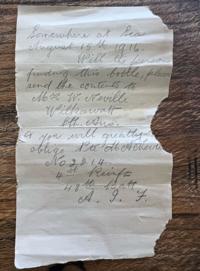 Somewhere at Sea
August 15th 1916.
Will the person
finding this bottle, please
send the contents to
Mrs W. Neville
Wilkawatt
Sth. Aus.
& you will greatly
oblige Pte
No 2814.
4th Reinf
48th Batt.
A. I. F.